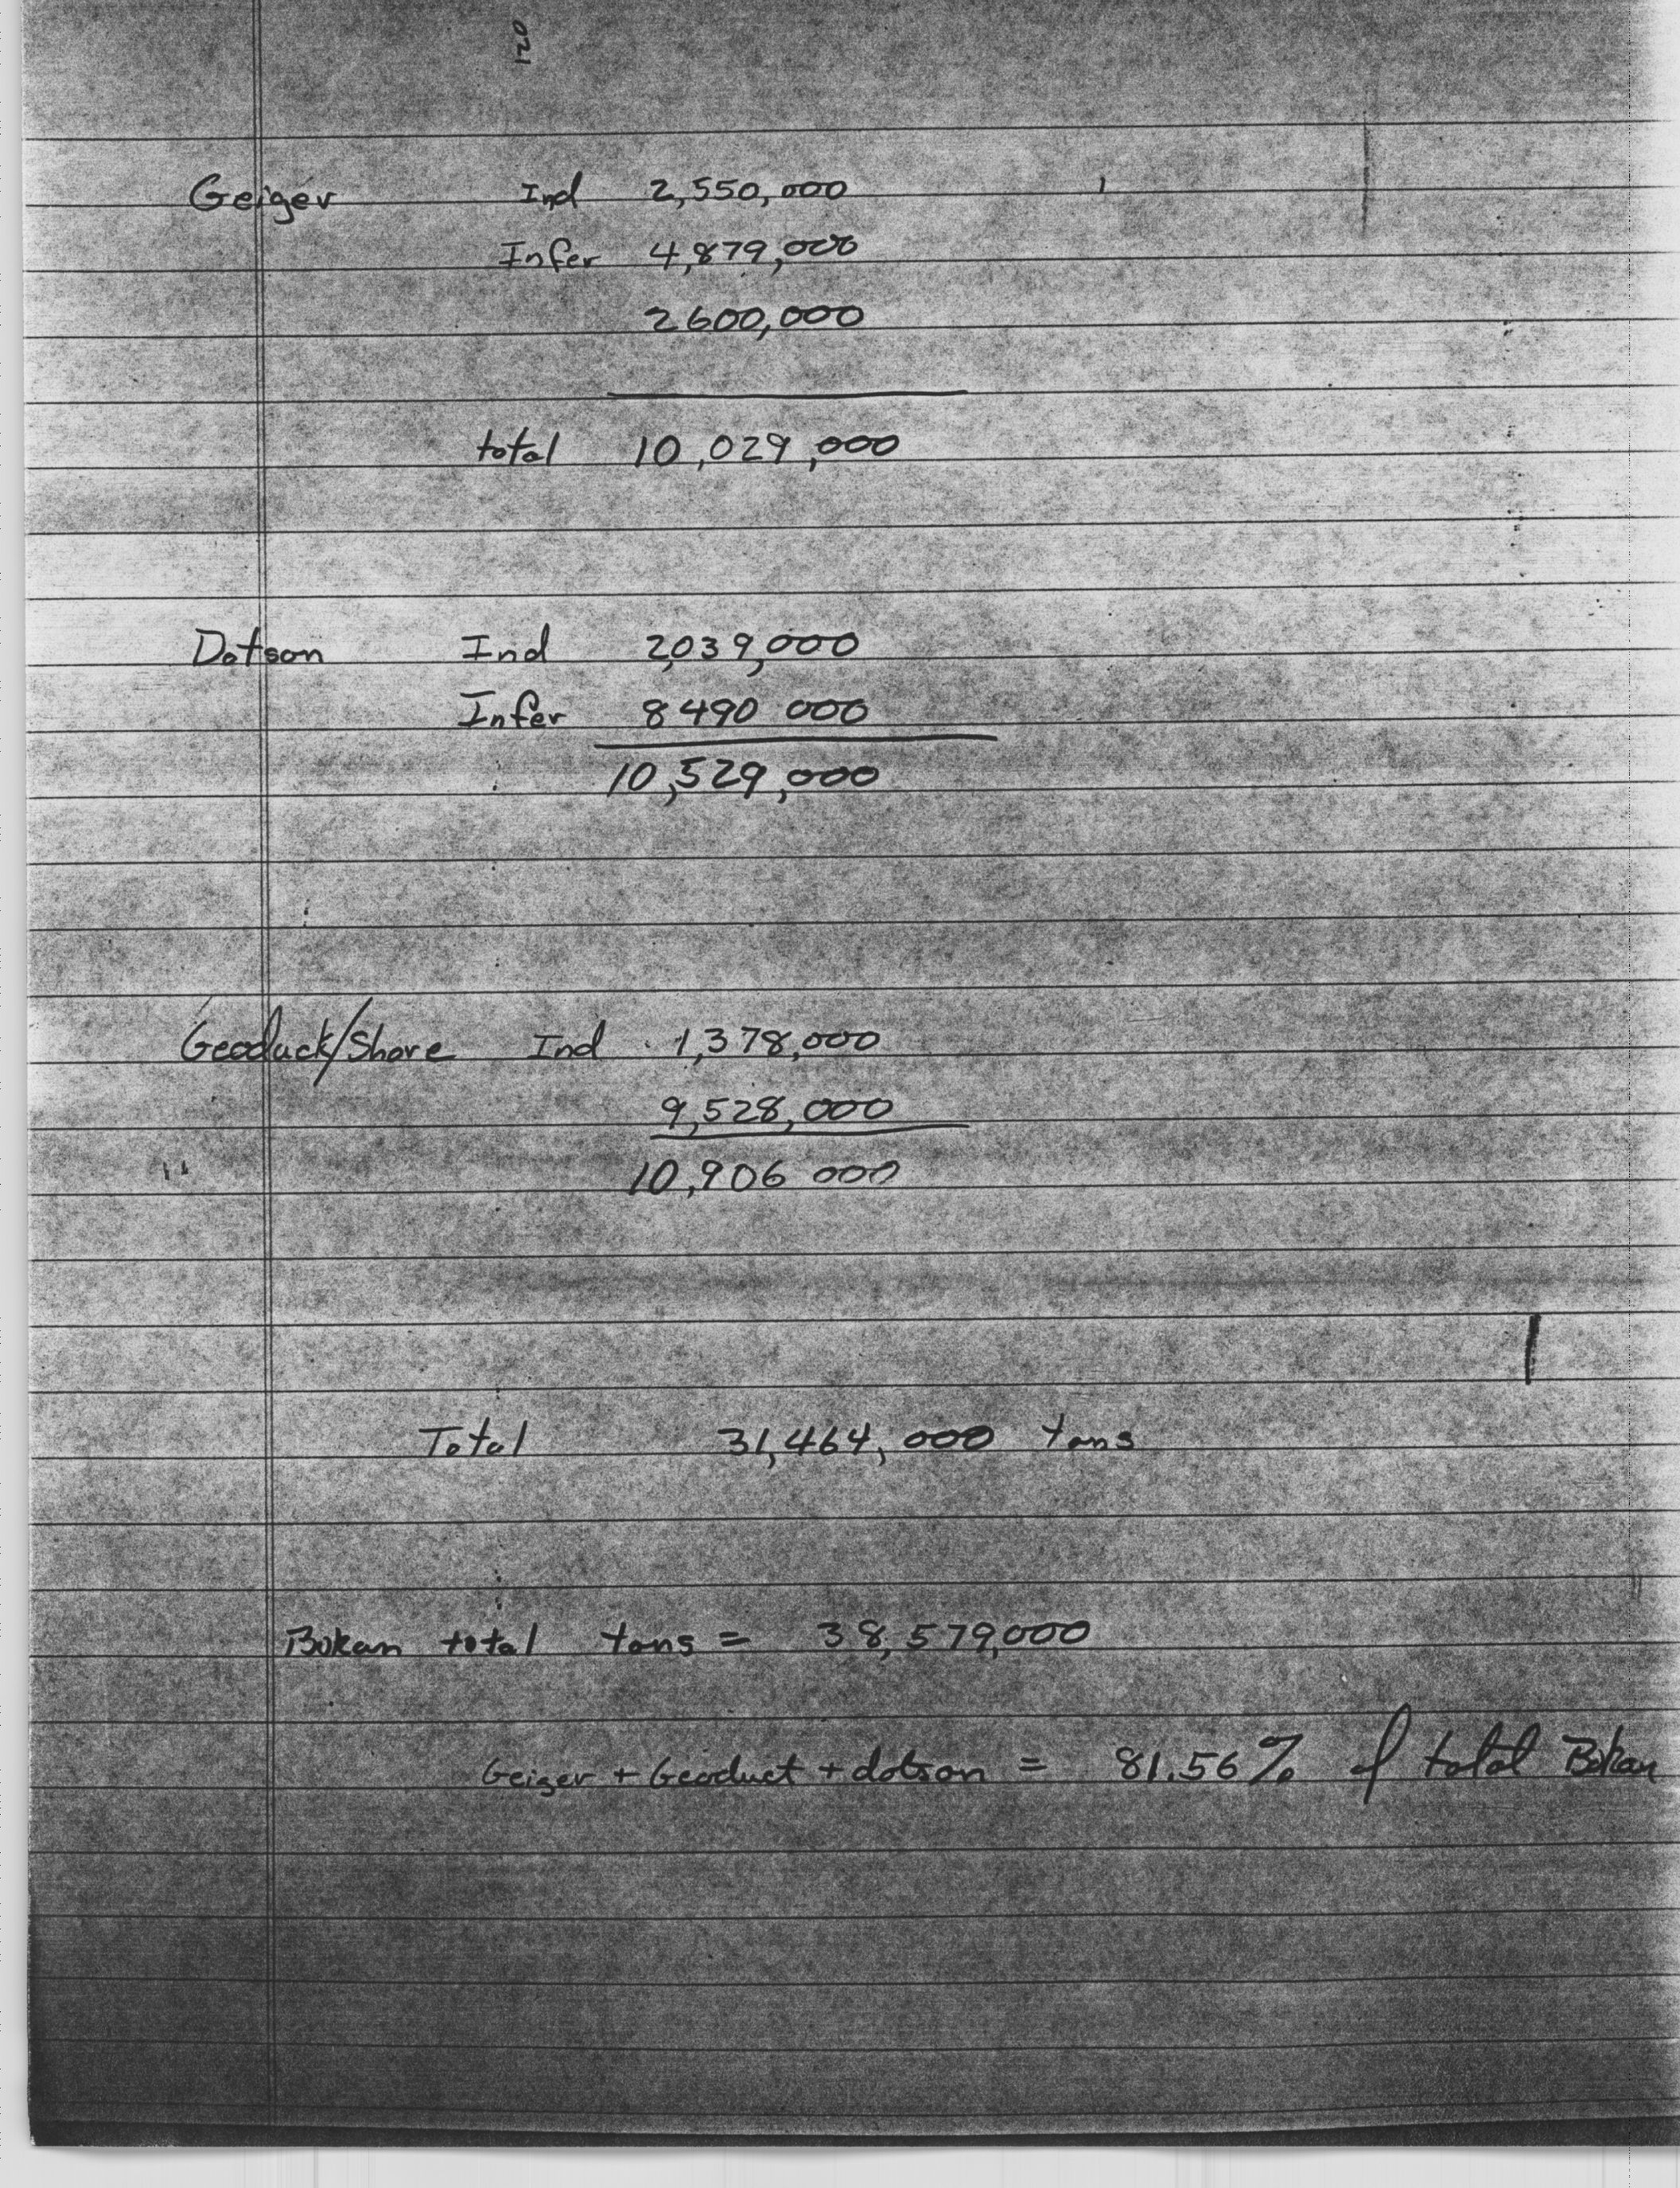 120
Geiger Ind 2,550,000
Infer 4,879,000
2600,000
total 10,029,000
Dotson Ind 2,039,000
Infer 8490 000
10,529,000
Geoduck/Shore Ind 1,378,000
9,528,000
10,906 000
Total 31,464,000 tons
Bokan total tons = 38,579,000
Geiger + Geoduct + dotson = 81.56% of total Bokan